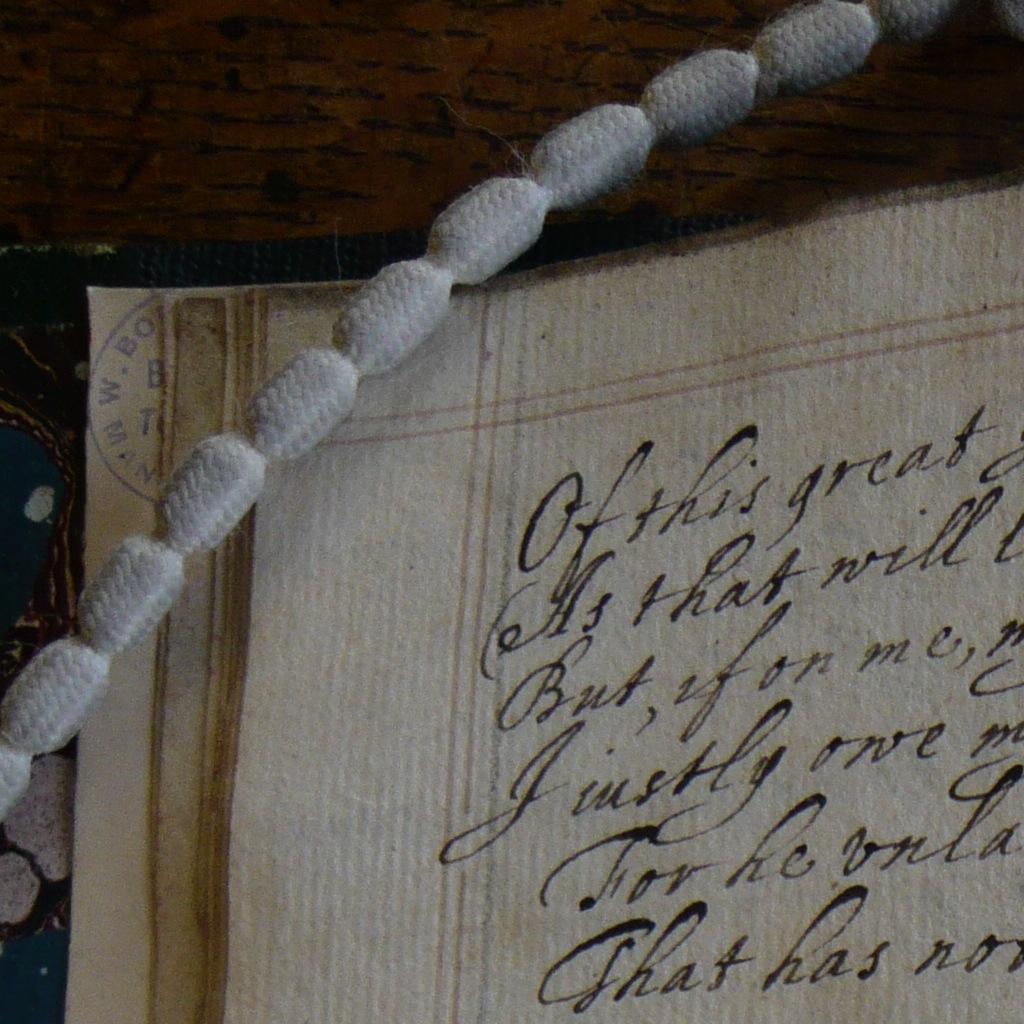 W. BO
B
T
Of this great
As that will
But, if on me,
I iustly owe
For he vnla
That has no